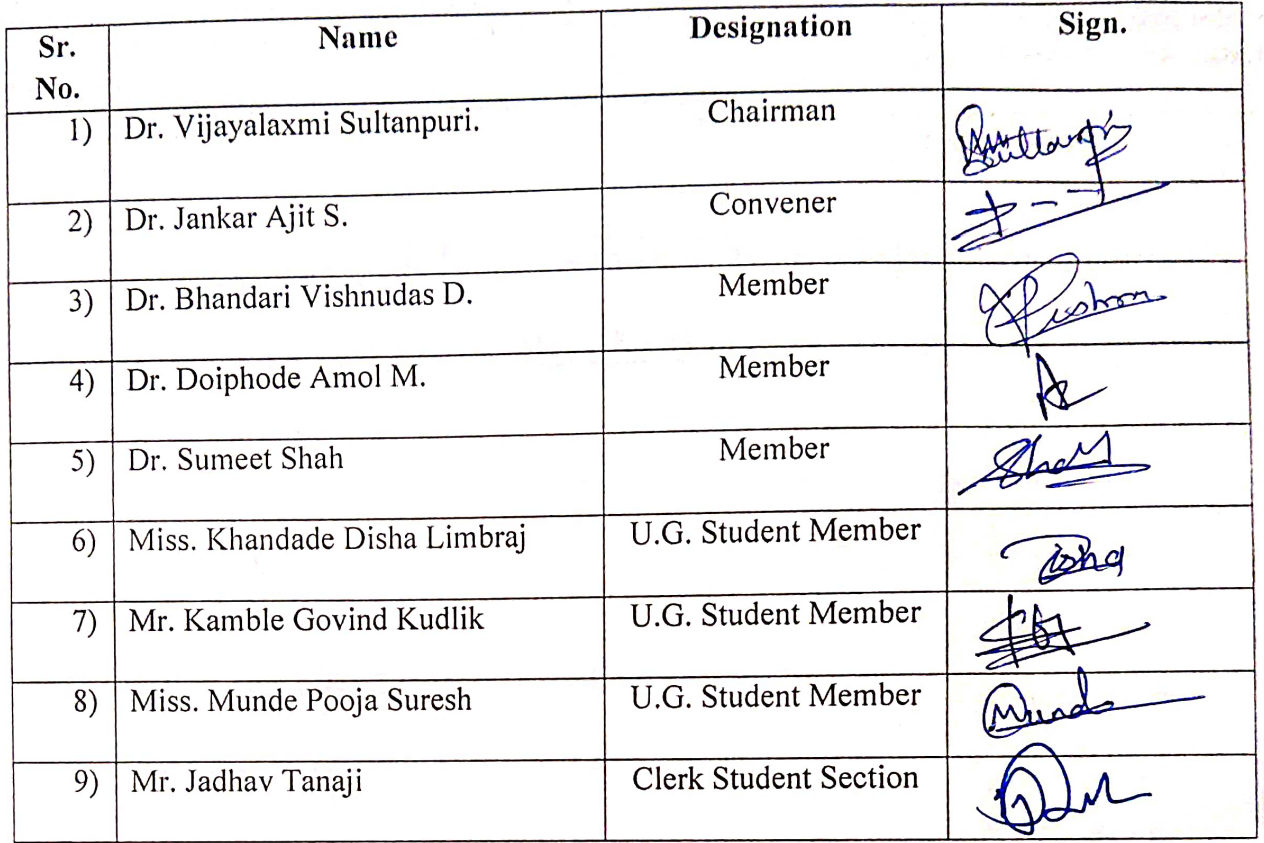 Sr. No. Name Designation Sign.
1) Dr. Vijayalaxmi Sultanpuri. Chairman
2) Dr. Jankar Ajit S. Convener
3) Dr. Bhandari Vishnudas D. Member
4) Dr. Doiphode Amol M. Member
5) Dr. Sumeet Shah Member Shah
6) Miss. Khandade Disha Limbraj U.G. Student Member
7) Mr. Kamble Govind Kudlik U.G. Student Member
8) Miss. Munde Pooja Suresh U.G. Student Member
9) Mr. Jadhav Tanaji Clerk Student Section